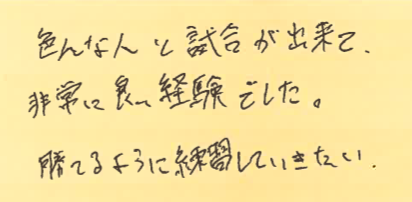 色んな人と試合が出来て、
非常に良い経験でした。
勝てるように練習していきたい.